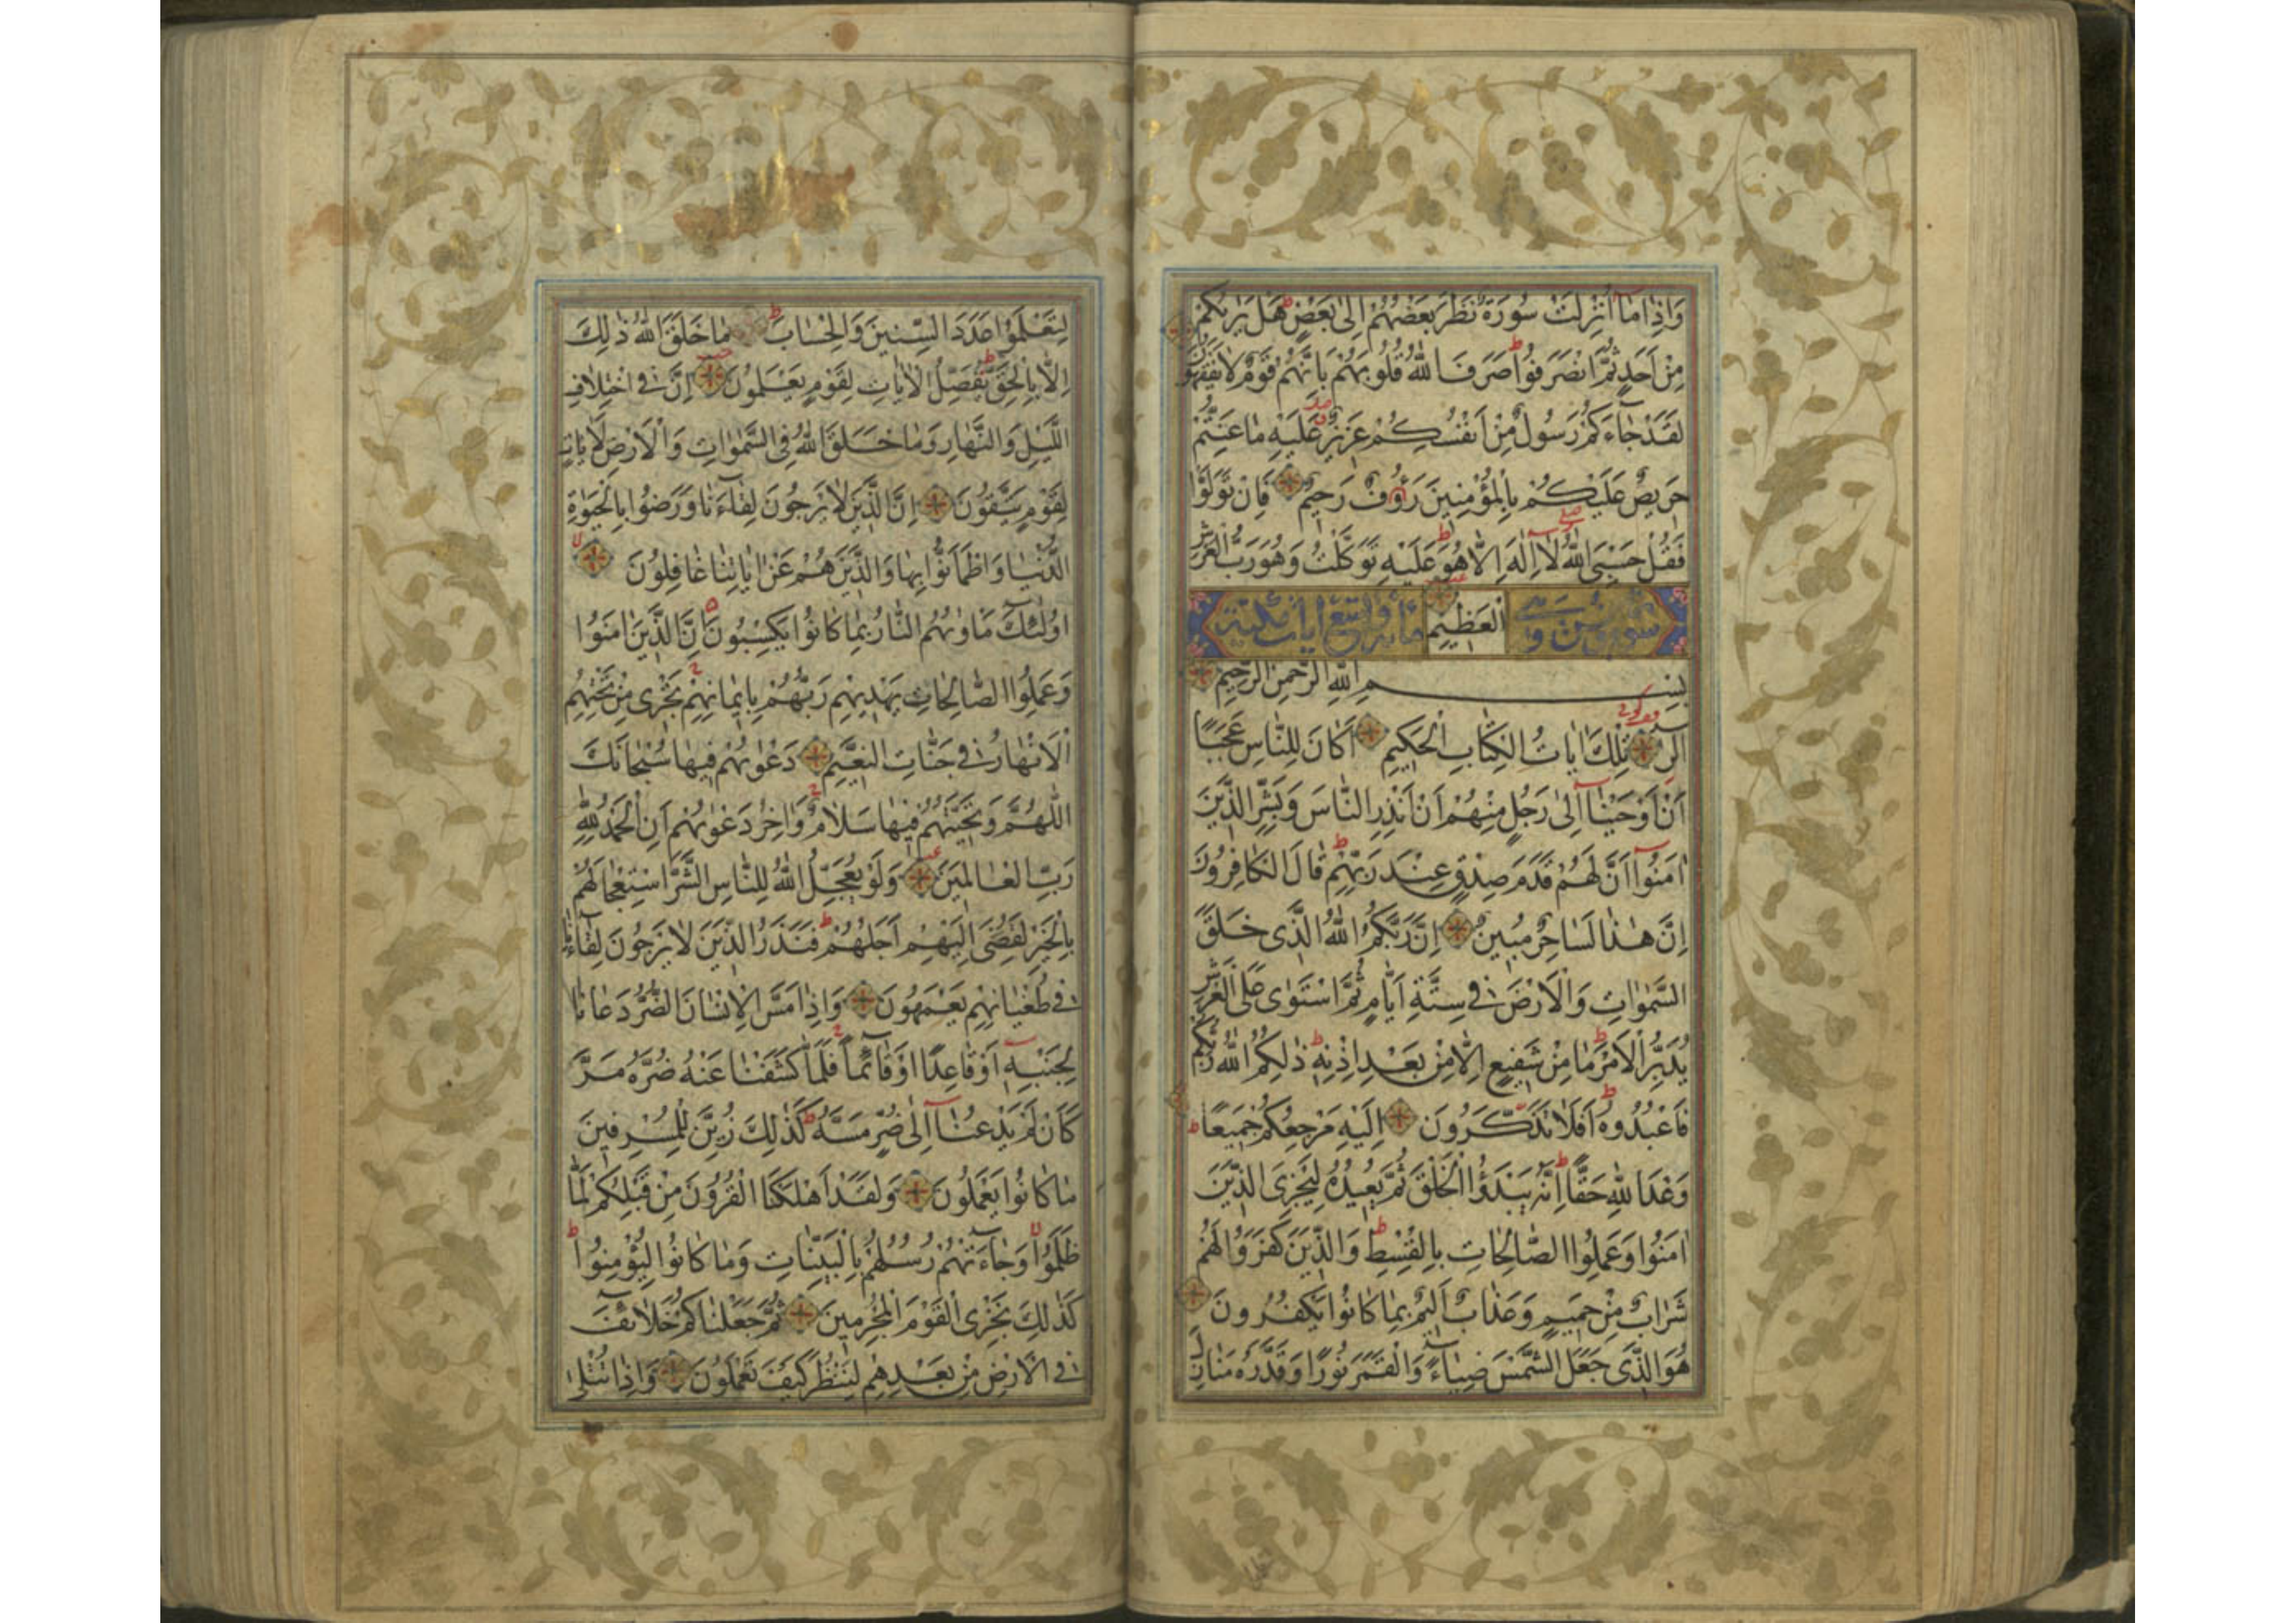 وَاِذَا مَا اُنْزِلَتْ سُورَةٌ نَظَرَ بَعْضُهُمْ اِلٰى بَعْضٍ هَلْ يَرٰيكُمْ
مِنْ اَحَدٍ ثُمَّ انْصَرَفُوا صَرَفَ اللّٰهُ قُلُوبَهُمْ بِاَنَّهُمْ قَوْمٌ لَا يَفْقَهُونَ
لَقَدْ جَاءَكُمْ رَسُولٌ مِنْ اَنْفُسِكُمْ عَزِيزٌ عَلَيْهِ مَا عَنِتُّمْ
حَرِيصٌ عَلَيْكُمْ بِالْمُؤْمِنِينَ رَؤُفٌ رَحِيمٌ فَاِنْ تَوَلَّوْا
فَقُلْ حَسْبِىَ اللّٰهُ لَا اِلٰهَ اِلَّا هُوَ عَلَيْهِ تَوَكَّلْتُ وَهُوَ رَبُّ الْعَرْشِ
سورة يونس الْعَظِيمِ مائة وتسع ايات مكية
بِسْمِ اللّٰهِ الرَّحْمٰنِ الرَّحِيمِ
الٓرٰ تِلْكَ اٰيَاتُ الْكِتَابِ الْحَكِيمِ اَكَانَ لِلنَّاسِ عَجَبًا
اَنْ اَوْحَيْنَا اِلٰى رَجُلٍ مِنْهُمْ اَنْ اَنْذِرِ النَّاسَ وَبَشِّرِ الَّذِينَ
اٰمَنُوا اَنَّ لَهُمْ قَدَمَ صِدْقٍ عِنْدَ رَبِّهِمْ قَالَ الْكَافِرُونَ
اِنَّ هٰذَا لَسَاحِرٌ مُبِينٌ اِنَّ رَبَّكُمُ اللّٰهُ الَّذِى خَلَقَ
السَّمٰوَاتِ وَالْاَرْضَ فِى سِتَّةِ اَيَّامٍ ثُمَّ اسْتَوٰى عَلَى الْعَرْشِ
يُدَبِّرُ الْاَمْرَ مَا مِنْ شَفِيعٍ اِلَّا مِنْ بَعْدِ اِذْنِهِ ذٰلِكُمُ اللّٰهُ رَبُّكُمْ
فَاعْبُدُوهُ اَفَلَا تَذَكَّرُونَ اِلَيْهِ مَرْجِعُكُمْ جَمِيعًا
وَعْدَ اللّٰهِ حَقًّا اِنَّهُ يَبْدَؤُا الْخَلْقَ ثُمَّ يُعِيدُهُ لِيَجْزِىَ الَّذِينَ
اٰمَنُوا وَعَمِلُوا الصَّالِحَاتِ بِالْقِسْطِ وَالَّذِينَ كَفَرُوا لَهُمْ
شَرَابٌ مِنْ حَمِيمٍ وَعَذَابٌ اَلِيمٌ بِمَا كَانُوا يَكْفُرُونَ
هُوَ الَّذِى جَعَلَ الشَّمْسَ ضِيَاءً وَالْقَمَرَ نُورًا وَقَدَّرَهُ مَنَازِلَ
لِتَعْلَمُوا عَدَدَ السِّنِينَ وَالْحِسَابَ مَا خَلَقَ اللّٰهُ ذٰلِكَ
اِلَّا بِالْحَقِّ يُفَصِّلُ الْاٰيَاتِ لِقَوْمٍ يَعْلَمُونَ اِنَّ فِى اخْتِلَافِ
اللَّيْلِ وَالنَّهَارِ وَمَا خَلَقَ اللّٰهُ فِى السَّمٰوَاتِ وَالْاَرْضِ لَاٰيَاتٍ
لِقَوْمٍ يَتَّقُونَ اِنَّ الَّذِينَ لَا يَرْجُونَ لِقَاءَنَا وَرَضُوا بِالْحَيٰوةِ
الدُّنْيَا وَاطْمَاَنُّوا بِهَا وَالَّذِينَ هُمْ عَنْ اٰيَاتِنَا غَافِلُونَ
اُولٰئِكَ مَاْوٰيهُمُ النَّارُ بِمَا كَانُوا يَكْسِبُونَ اِنَّ الَّذِينَ اٰمَنُوا
وَعَمِلُوا الصَّالِحَاتِ يَهْدِيهِمْ رَبُّهُمْ بِاِيمَانِهِمْ تَجْرِى مِنْ تَحْتِهِمُ
الْاَنْهَارُ فِى جَنَّاتِ النَّعِيمِ دَعْوٰيهُمْ فِيهَا سُبْحَانَكَ
اللّٰهُمَّ وَتَحِيَّتُهُمْ فِيهَا سَلَامٌ وَاٰخِرُ دَعْوٰيهُمْ اَنِ الْحَمْدُ لِلّٰهِ
رَبِّ الْعَالَمِينَ وَلَوْ يُعَجِّلُ اللّٰهُ لِلنَّاسِ الشَّرَّ اسْتِعْجَالَهُمْ
بِالْخَيْرِ لَقُضِىَ اِلَيْهِمْ اَجَلُهُمْ فَنَذَرُ الَّذِينَ لَا يَرْجُونَ لِقَاءَنَا
فِى طُغْيَانِهِمْ يَعْمَهُونَ وَاِذَا مَسَّ الْاِنْسَانَ الضُّرُّ دَعَانَا
لِجَنْبِهِ اَوْ قَاعِدًا اَوْ قَائِمًا فَلَمَّا كَشَفْنَا عَنْهُ ضُرَّهُ مَرَّ
كَاَنْ لَمْ يَدْعُنَا اِلٰى ضُرٍّ مَسَّهُ كَذٰلِكَ زُيِّنَ لِلْمُسْرِفِينَ
مَا كَانُوا يَعْمَلُونَ وَلَقَدْ اَهْلَكْنَا الْقُرُونَ مِنْ قَبْلِكُمْ لَمَّا
ظَلَمُوا وَجَاءَتْهُمْ رُسُلُهُمْ بِالْبَيِّنَاتِ وَمَا كَانُوا لِيُؤْمِنُوا
كَذٰلِكَ نَجْزِى الْقَوْمَ الْمُجْرِمِينَ ثُمَّ جَعَلْنَاكُمْ خَلَائِفَ
فِى الْاَرْضِ مِنْ بَعْدِهِمْ لِنَنْظُرَ كَيْفَ تَعْمَلُونَ وَاِذَا تُتْلٰى